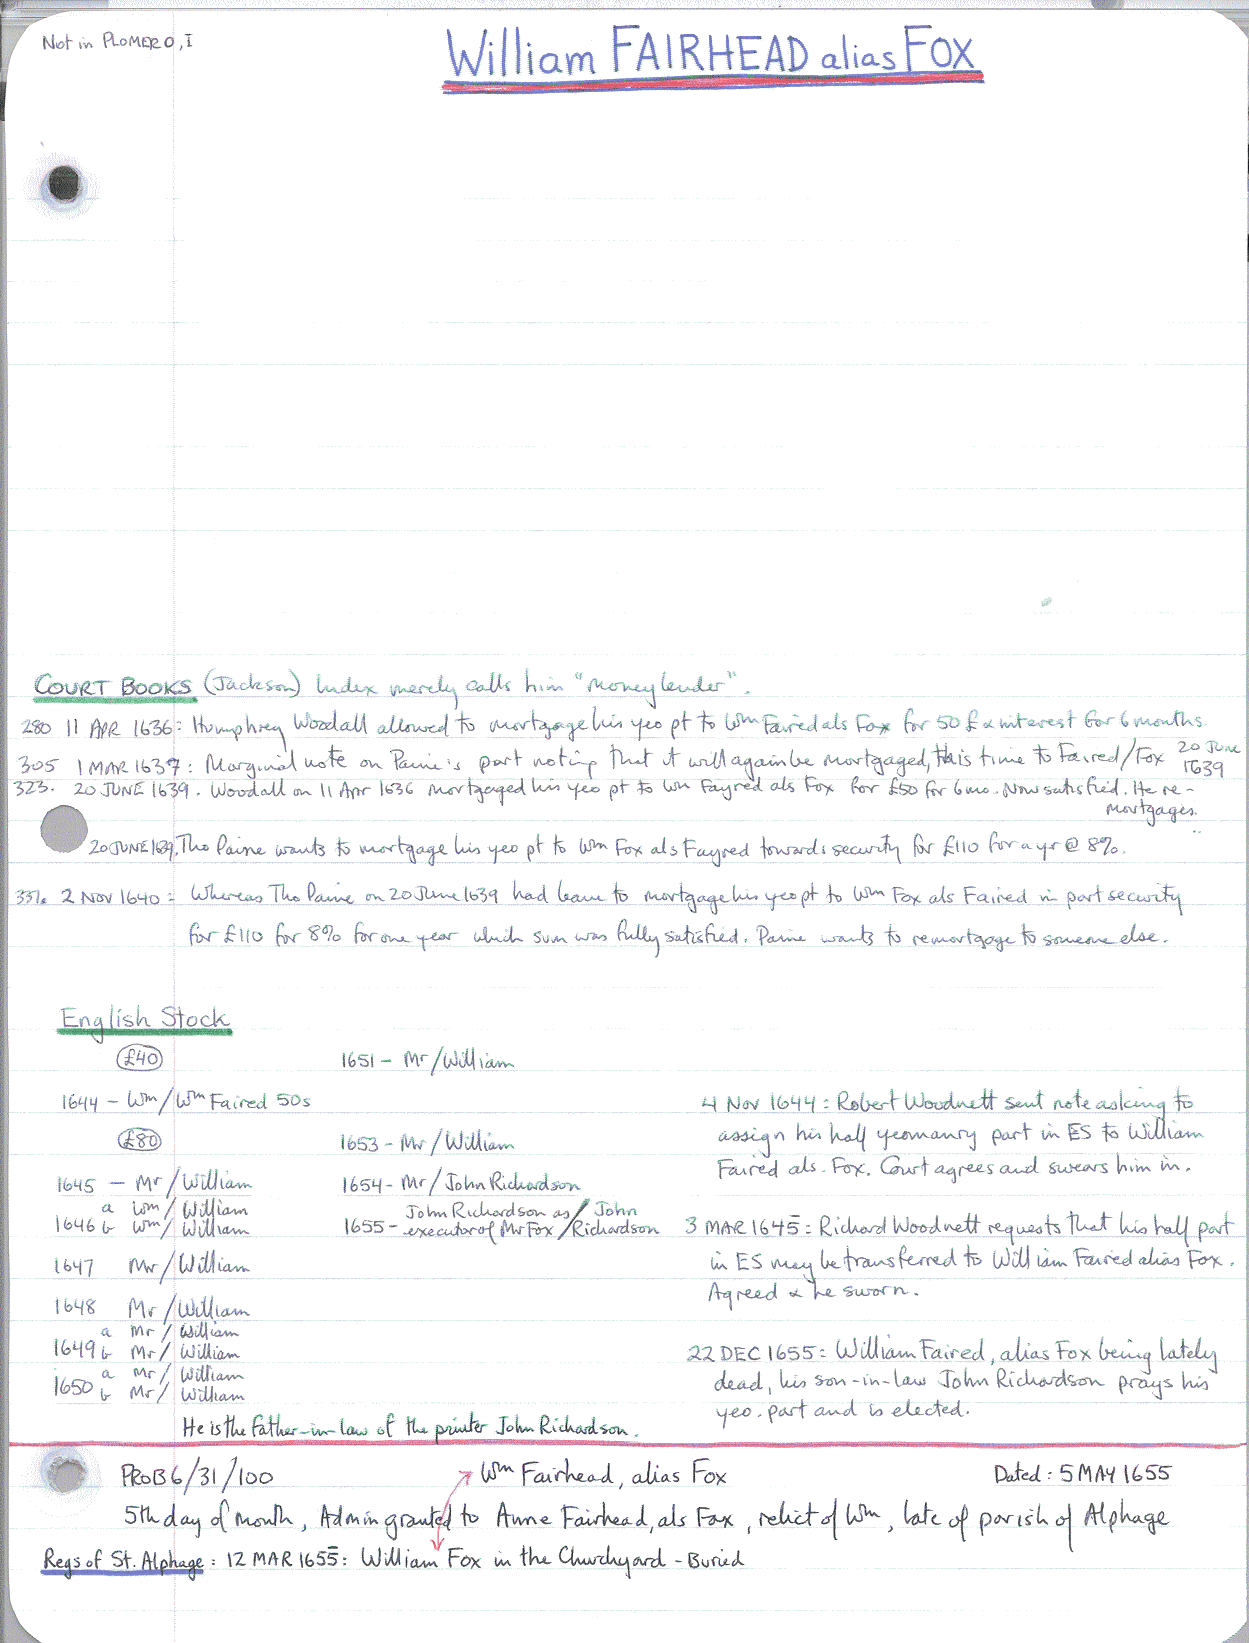 Not in PLOMER O, I
William FAIRHEAD alias FOX
COURT BOOKS (Jackson) Index merely calls him "moneylender".
280 11 APR 1636: Humphrey Woodall allowed to mortgage his yeo pt to Wm Faired als Fox for 50 £ & interest for 6 months.
305 1 MAR 1637: Marginal note on Paine's part noting that it will again be mortgaged, this time to Faired/Fox 20 JUNE 1639
323. 20 JUNE 1639. Woodall on 11 Apr 1636 mortgaged his yeo pt to Wm Fayred als Fox for £50 for 6 mo. Now satisfied. He re-
mortgages.
20 JUNE 1639. Tho Paine wants to mortgage his yeo pt to Wm Fox als Fayred towards security for £110 for a yr @ 8%.
331. 2 NOV 1640: Whereas Tho Paine on 20 June 1639 had leave to mortgage his yeo pt to Wm Fox als Faired in part security
for £110 for 8% for one year which sum was fully satisfied. Paine wants to remortgage to someone else.
English Stock
£40
1644 - Wm/Wm Faired 50s
£80
1645 - Mr/William
1646 a Wm/William
b Wm/William
1647 Mr/William
1648 Mr/William
1649 a Mr/William
b Mr/William
1650 a Mr/William
b Mr/William
1651 - Mr/William
1653 - Mr/William
1654 - Mr/John Richardson
1655 - John Richardson as executor of Mr Fox/John Richardson
4 NOV 1644: Robert Woodnett sent note asking to
assign his half yeomanry part in ES to William
Faired als. Fox. Court agrees and swears him in.
3 MAR 1645: Richard Woodnett requests that his half part
in ES may be transferred to William Faired alias Fox.
Agreed & he sworn.
22 DEC 1655: William Faired, alias Fox being lately
dead, his son-in-law John Richardson prays his
yeo. part and is elected.
He is the father-in-law of the printer John Richardson.
PROB 6/31/100 Wm Fairhead, alias Fox Dated: 5 MAY 1655
5th day of month, Admin granted to Anne Fairhead, als Fox, relict of Wm, late of parish of Alphage
Regs of St. Alphage: 12 MAR 1655: William Fox in the Churchyard - Buried